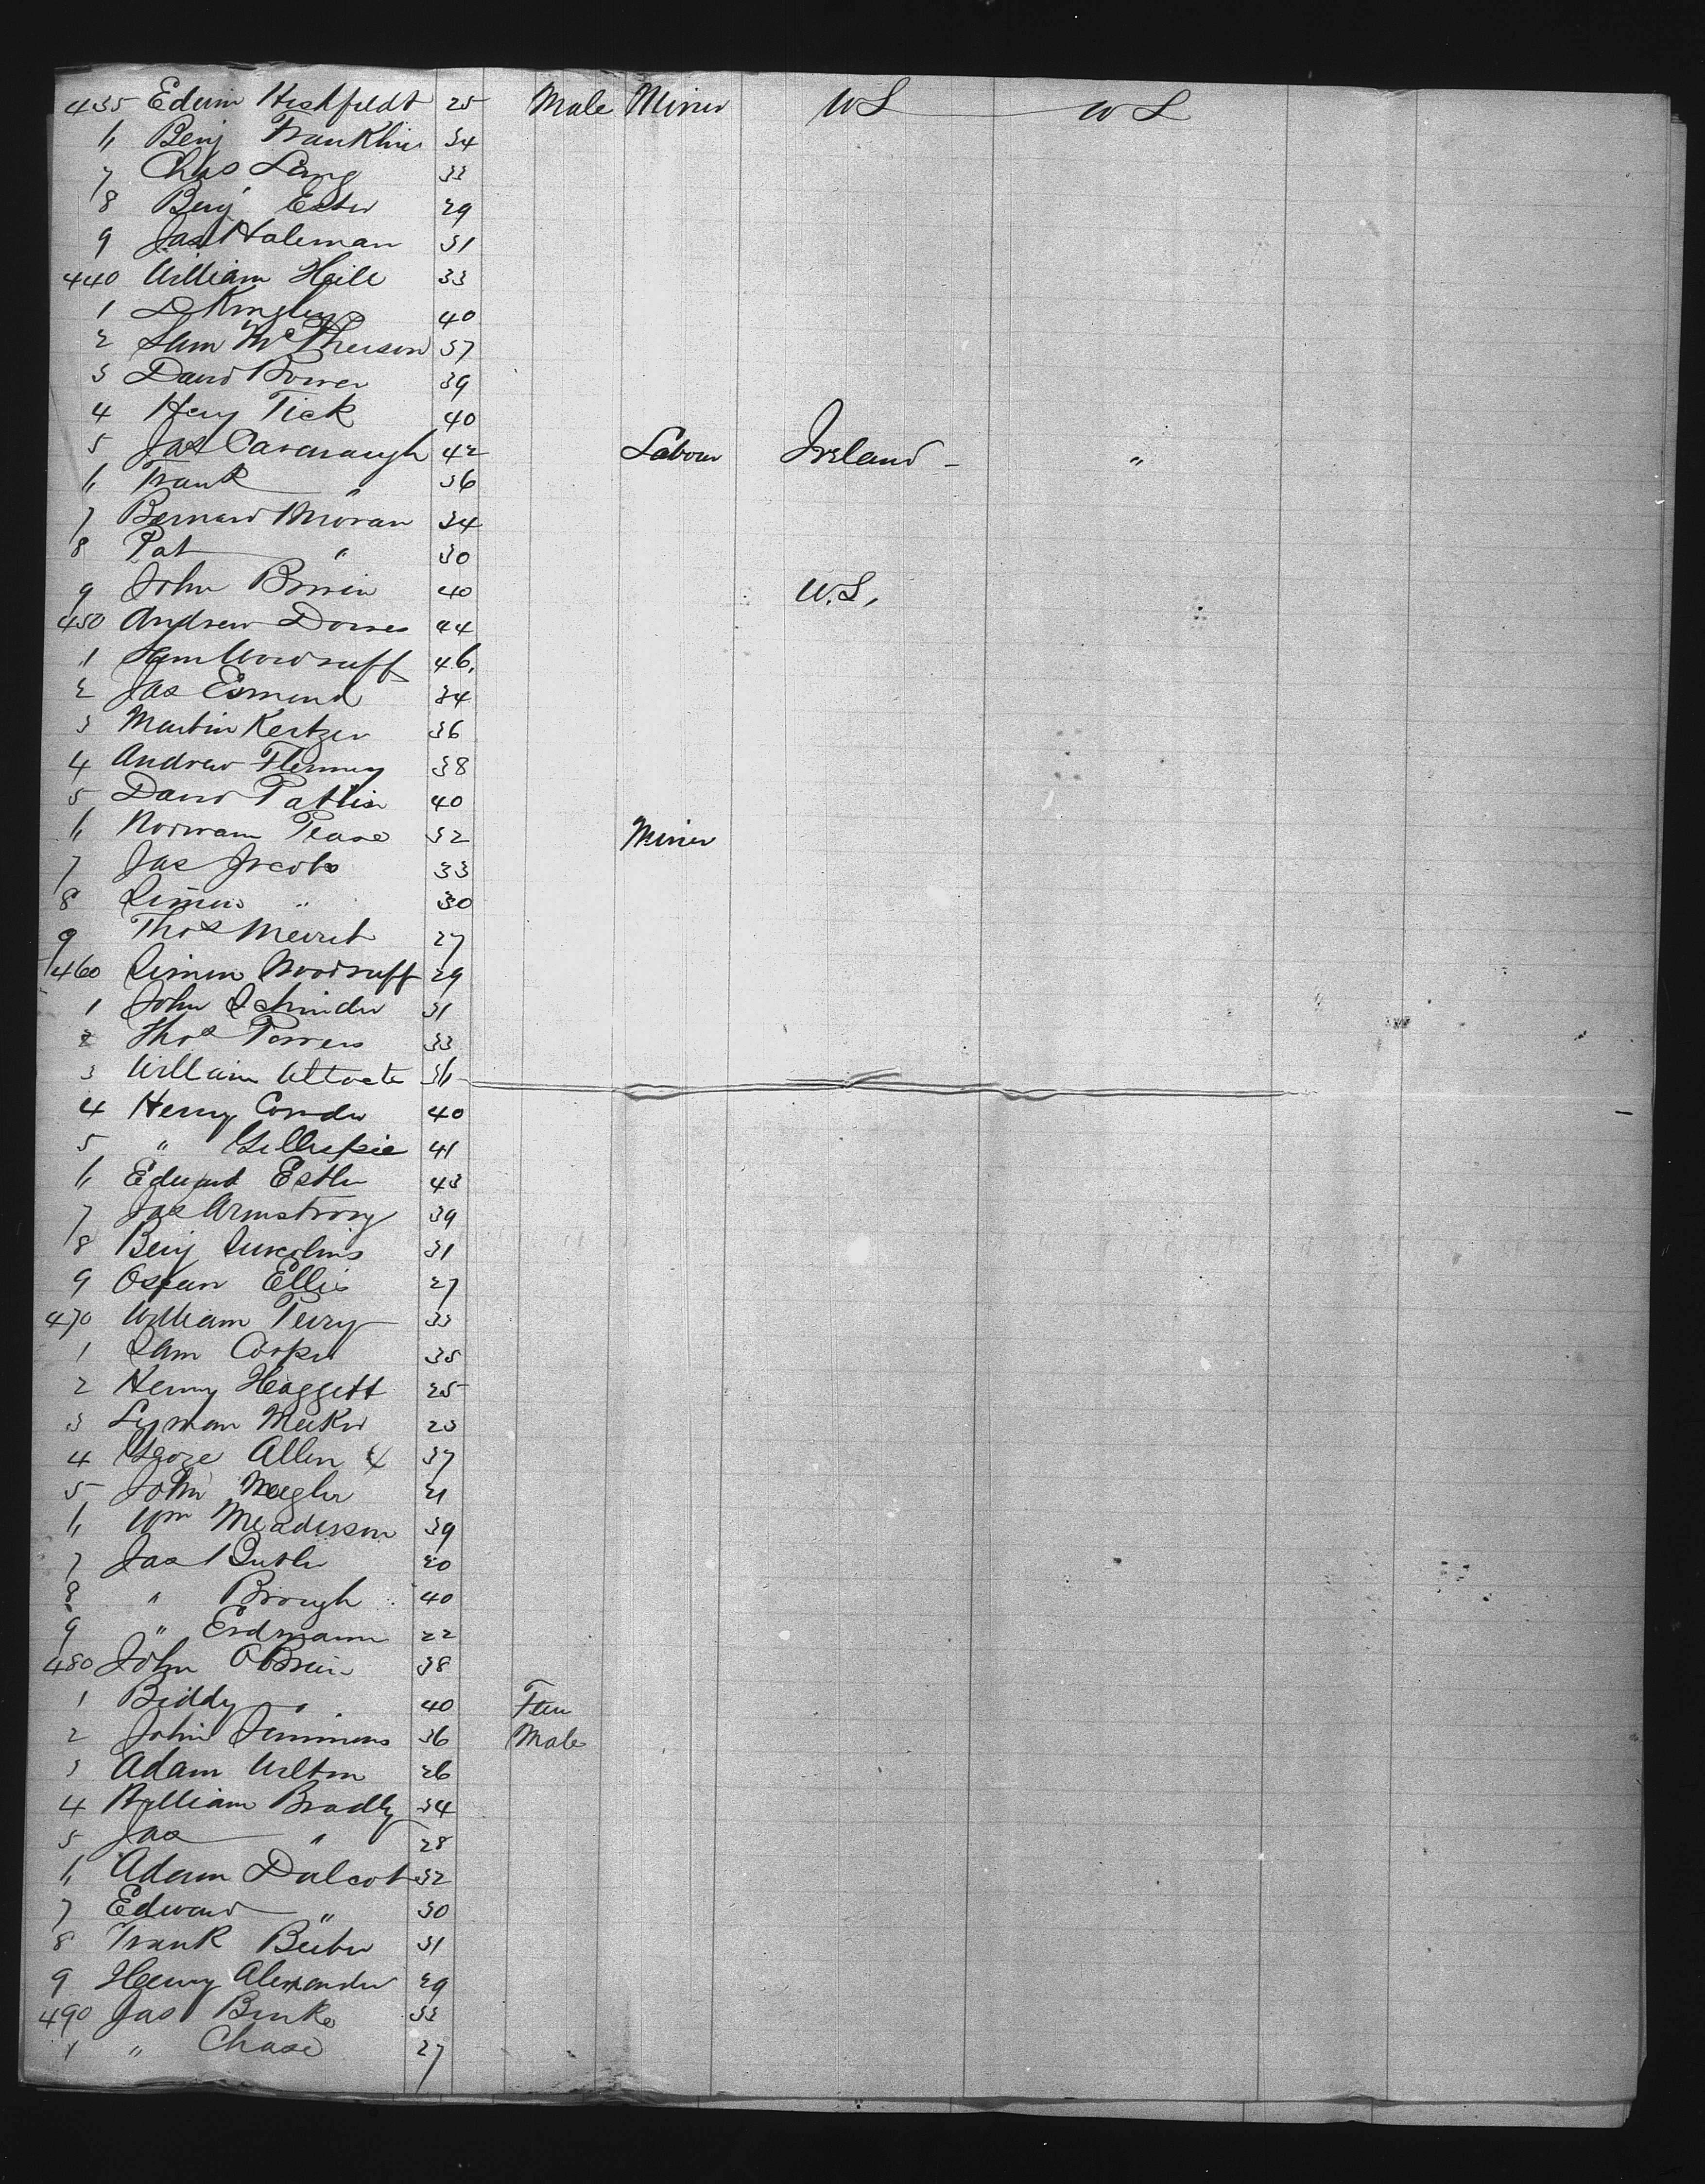 435 Edwin Hishfeldt 25 Male Miner U S U S
6 Benj Franklin 34
7 Chas Lang 33
8 Benj Ester 29
9 Jas Haleman 31
440 William Heile 33
1 D Kingley 40
2 Sam McPherson 37
3 David Bower 39
4 Heny Tick 40
5 Jas Cavanaugh 42 Labour Ireland - "
6 Frank " 36
7 Bernard Moran 34
8 Pat " 30
9 John Brwin 40 U.S,
450 Andrew Dorres 44
1 Sam Woodruff 46,
2 Jas Esmend 34
3 Martin Kertzer 36
4 Andrew Flemmy 38
5 David Patkin 40
6 Norman Pease 32 Miner
7 Jas Jacobs 33
8 Simon " 30
9 Thos Merrit 27
460 Simon Woodruff 29
1 John Schnider 31
2 Thos Powers 33
3 William 36
4 Henry Conder 40
5 " Gillespie 41
6 Edward Esther 43
7 Jas Armstrong 39
8 Benj 31
9 Ellis 27
470 William Perry 33
1 Sam Cooper 35
2 Henry Heaggett 25
3 Lyman Meeker 23
4 Geoge Allen 37
5 John Meagher 21
6 Wm Meadisson 39
7 Jas Butler 20
8 " Brough 40
9 " Erdmann 22
480 John OBrien 38
1 Biddy " 40 Fem
2 John Simmons 36 Male
3 Adam Wilton 26
4 William Bradly 34
5 Jas " 28
6 Adam Dalcot 32
7 Edward " 30
8 Frank Beeber 31
9 Henry Alexander 29
490 Jas Burke 33
1 " Chase 27